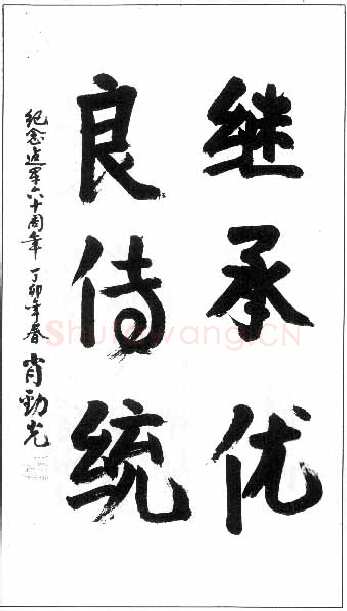 继承优
良传统
纪念建军六十周年 丁卯年春
肖劲光